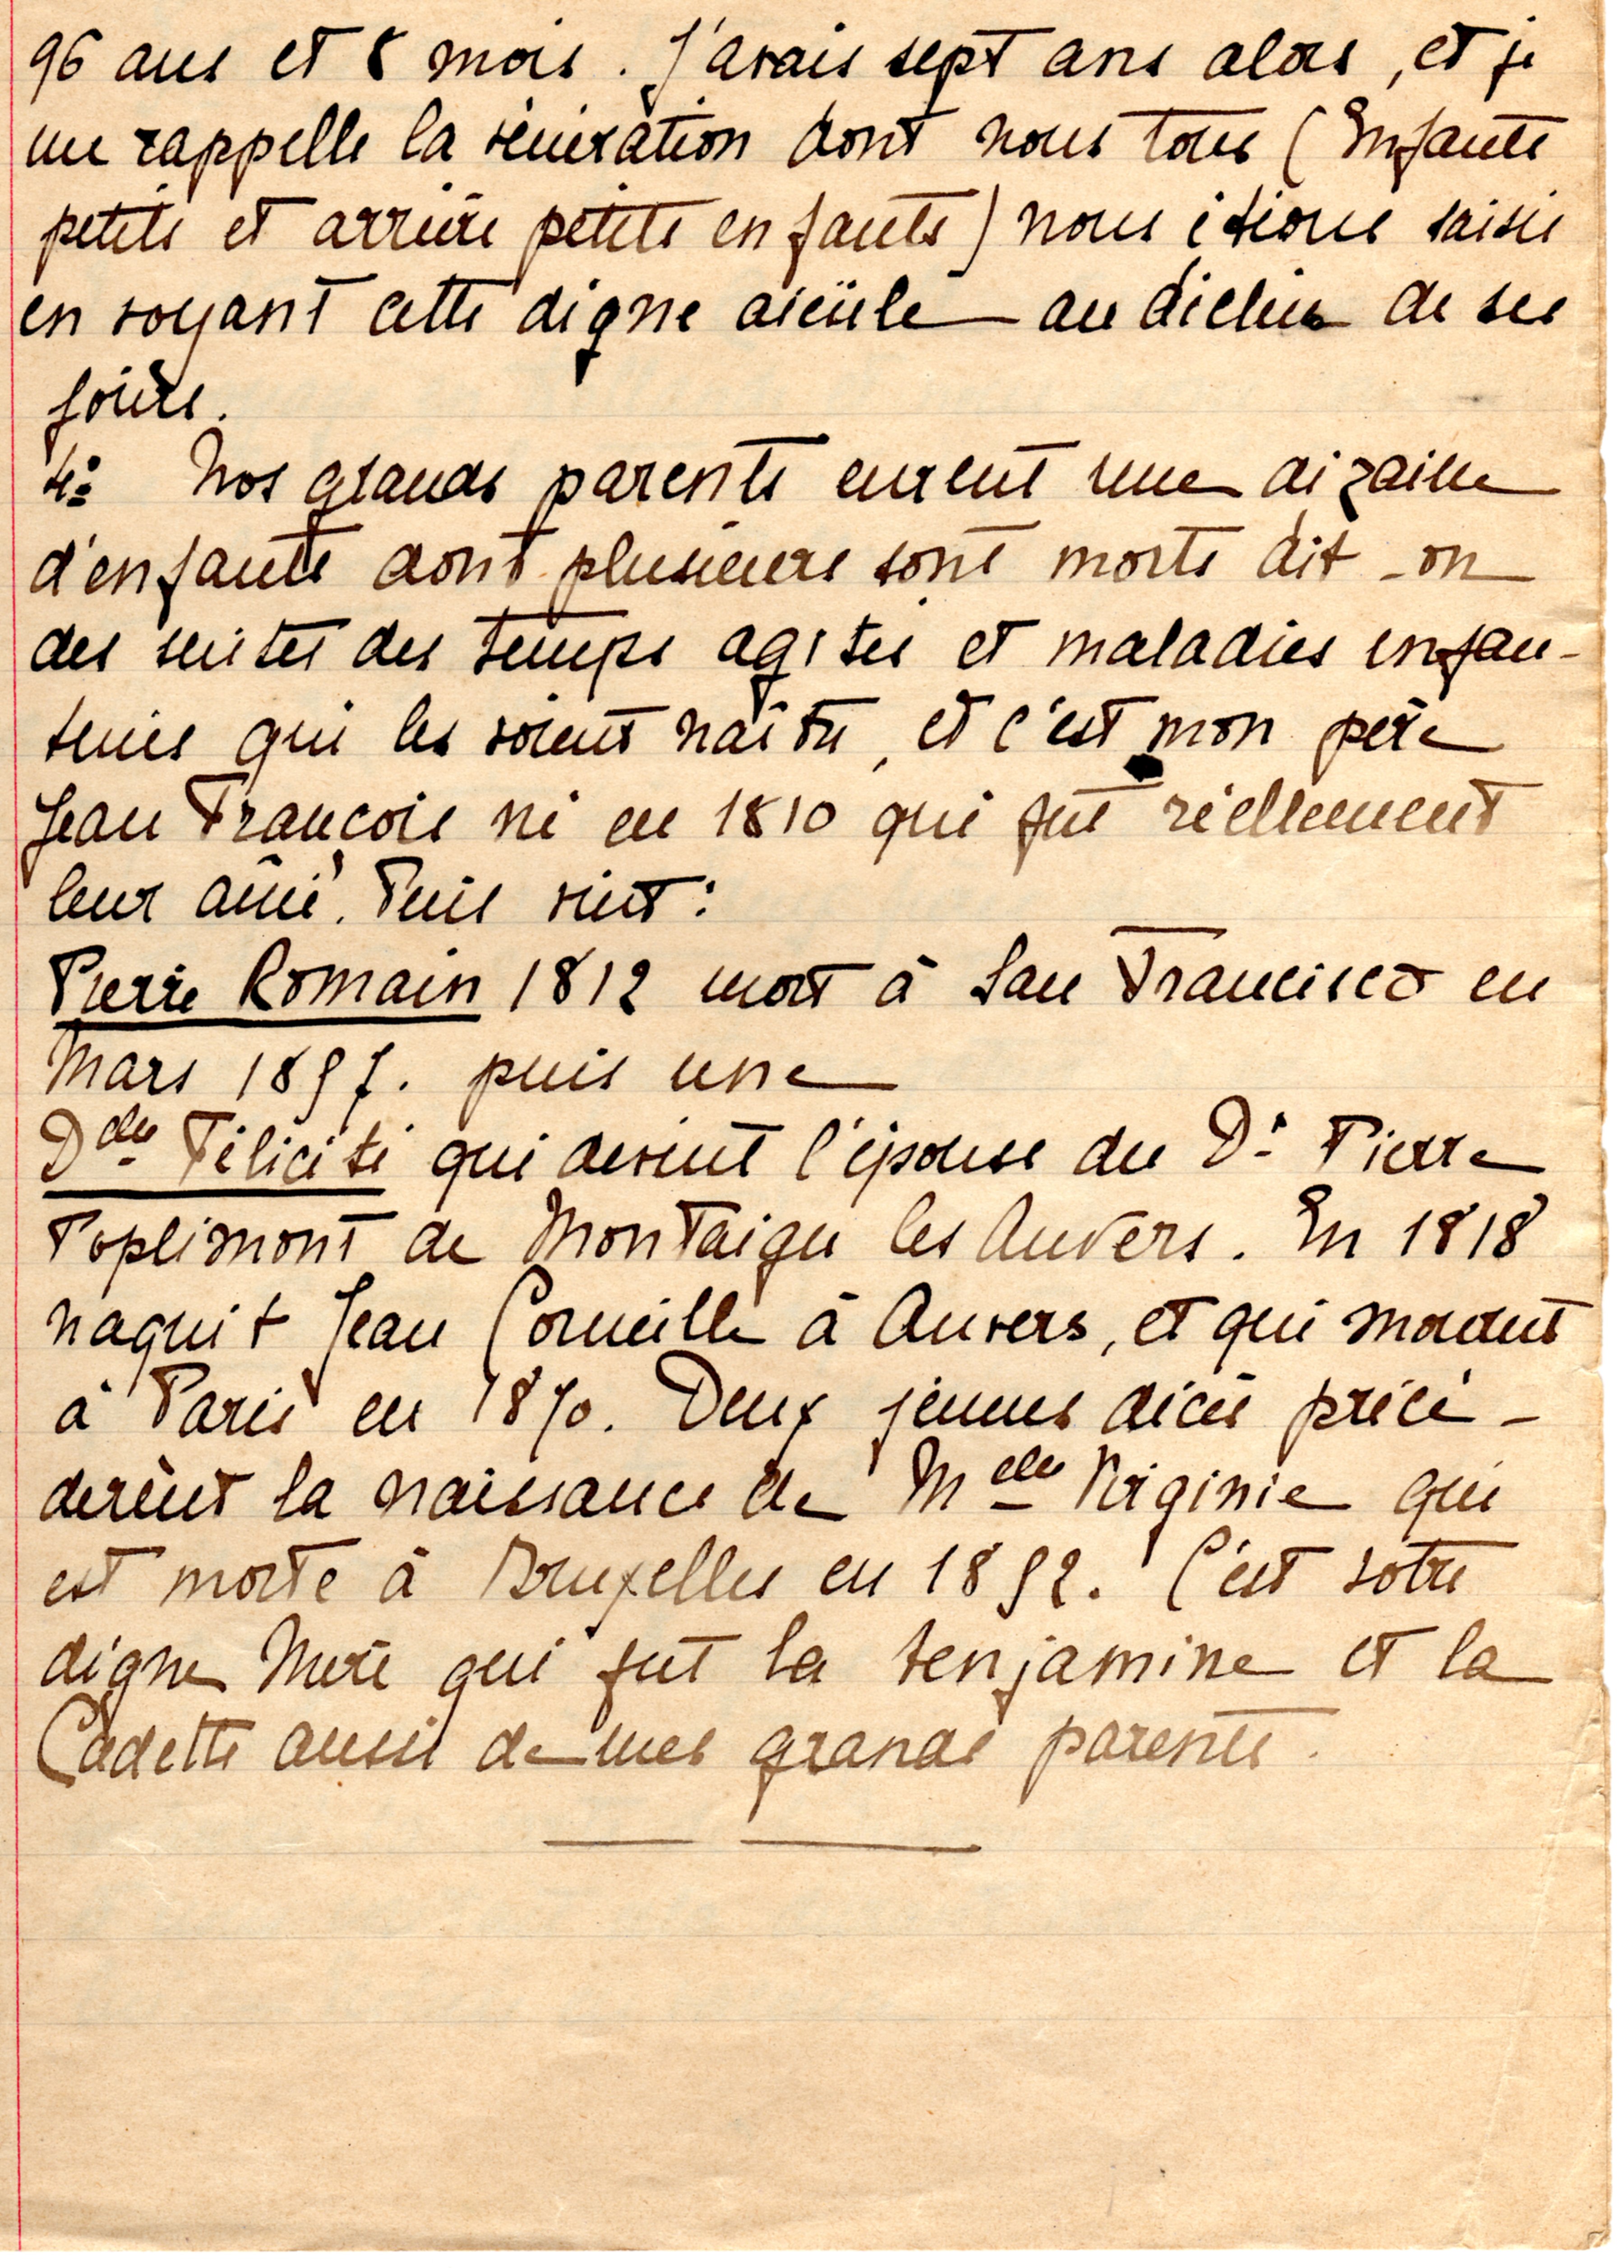 96 ans et 8 mois. J'avais sept ans alors, et je
me rappelle la vénération dont nous tous (Enfants
petits et arrière petits enfants) nous étions saisis
en voyant cette digne aïeüle au déclin de ses
jours.
4º Nos grands parents eurent une dizaine
d'enfants dont plusieurs sont morts dit-on
des suites des temps agités et maladies enfan-
tines qui les virent naître, et c'est mon père
Jean François né en 1810 qui fut réellement
leur aîné. Puis vint:
Pierre Romain 1812 mort à San Francisco en
Mars 1897. puis une
Dlle Félicité qui devint l'épouse du Dr Pierre
Poplimont de Montaigu les Anvers. En 1818
naquit Jean Corneille à Anvers, et qui mourut
à Paris en 1870. Deux jeunes décès précé-
dèrent la naissance de Melle Virginie qui
est morte à Bruxelles en 1892. C'est votre
digne Mère qui fut la benjamine et la
Cadette aussi de mes grands parents.